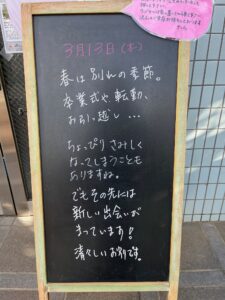 3月13日(木)
春は別れの季節。
卒業式や、転勤、
お引っ越し...
ちょっぴりさみしく
なってしまうことも
ありますね。
でもその先には
新しい出会いが
まっています!
清々しいお別れです。